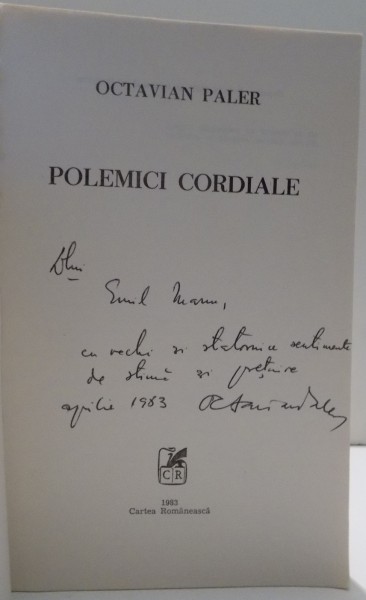 OCTAVIAN PALER
POLEMICI CORDIALE
Dlui
Emil Manu,
cu vechi și statornice sentimente
de stimă și prețuire
aprilie 1983 Octavian Paler
CR
1983
Cartea Românească